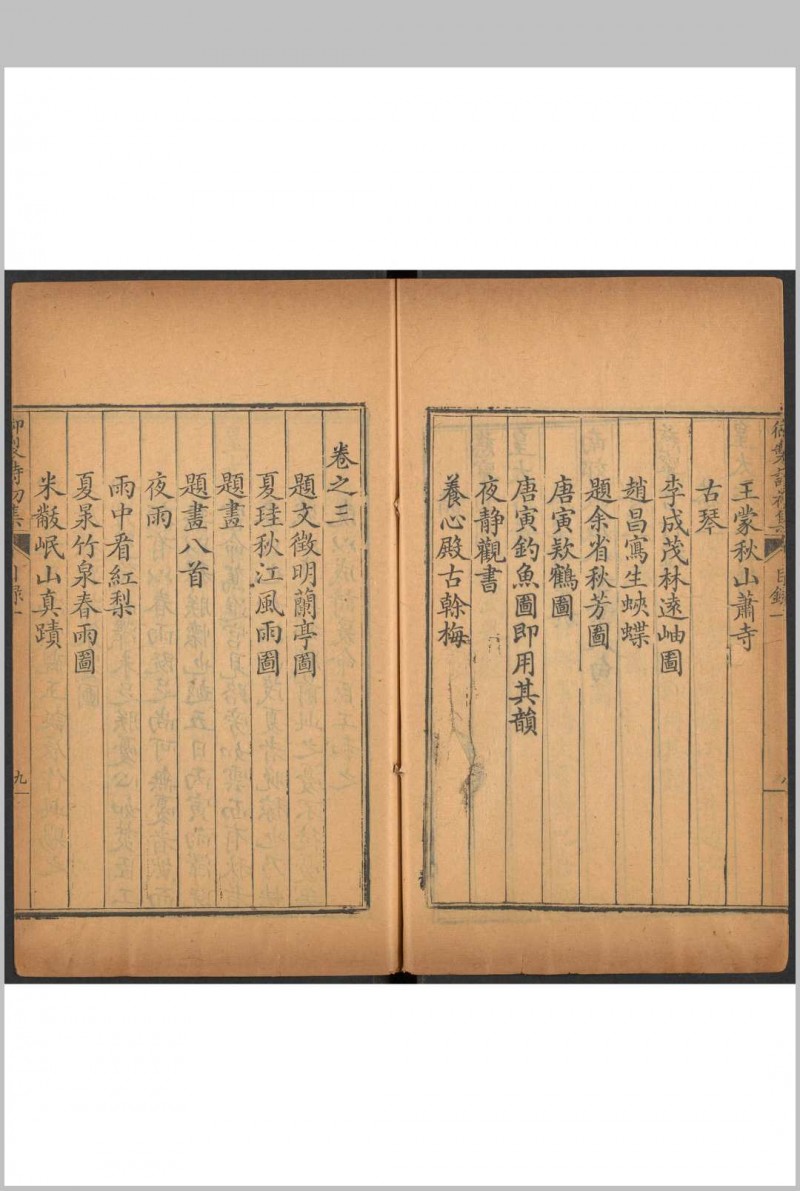 王蒙秋山蕭寺
古琴
李成茂林遠岫圖
趙昌寫生蛺蝶
題余省秋芳圖
唐寅欵鶴圖
唐寅釣魚圖即用其韻
夜静觀書
養心殿古榦梅
卷之三
題文徵明蘭亭圖
夏珪秋江風雨圖
題畫
題畫八首
夜雨
雨中看紅梨
夏㫤竹泉春雨圖
米黻岷山真蹟
御製詩初集
目録一
九